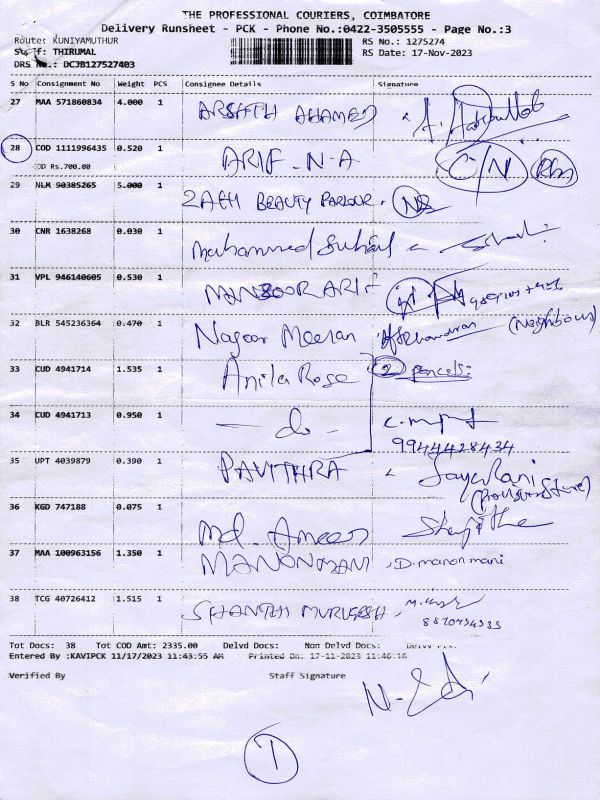 THE PROFESSIONAL COURIERS, COIMBATORE
Delivery Runsheet - PCK - Phone No.:0422-3505555 - Page No.:3
Route: KUNIYAMUTHUR RS No.: 1275274
Staff: THIRUMAL RS Date: 17-Nov-2023
DRS No.: DCJB127527403
S No Consignment No Weight PCS Consignee Details Signature
27 MAA 571860834 4.000 1 ARSHTH AHAMED
28 COD 1111996435 0.520 1 ARIF-N-A C/N
OD Rs.700.00
29 NLM 90385265 5.000 1 ZAEH BEAUTY PARLOUR.
30 CNR 1638268 0.030 1 Muhammed Suhail
31 VPL 946140605 0.530 1 MANSOOR ARIF
32 BLR 545236364 0.470 1 Nagoor Meeran (Neighbours)
33 CUD 4941714 1.535 1 Anila Rose 2 parcels:
34 CUD 4941713 0.950 1 - do -
9944428434
35 UPT 4039879 0.390 1 PAVITHRA Jaya Rani
36 KGD 747188 0.075 1 Md. Ameer
37 MAA 100963156 1.350 1 MANONMANI D. manonmani
38 TCG 40726412 1.515 1 SHANTHI MURUGESH
Tot Docs: 38 Tot COD Amt: 2335.00 Delvd Docs: Non Delvd Docs:
Entered By :KAVIPCK 11/17/2023 11:43:55 AM Printed On: 17-11-2023 11:46:16
Verified By Staff Signature
1